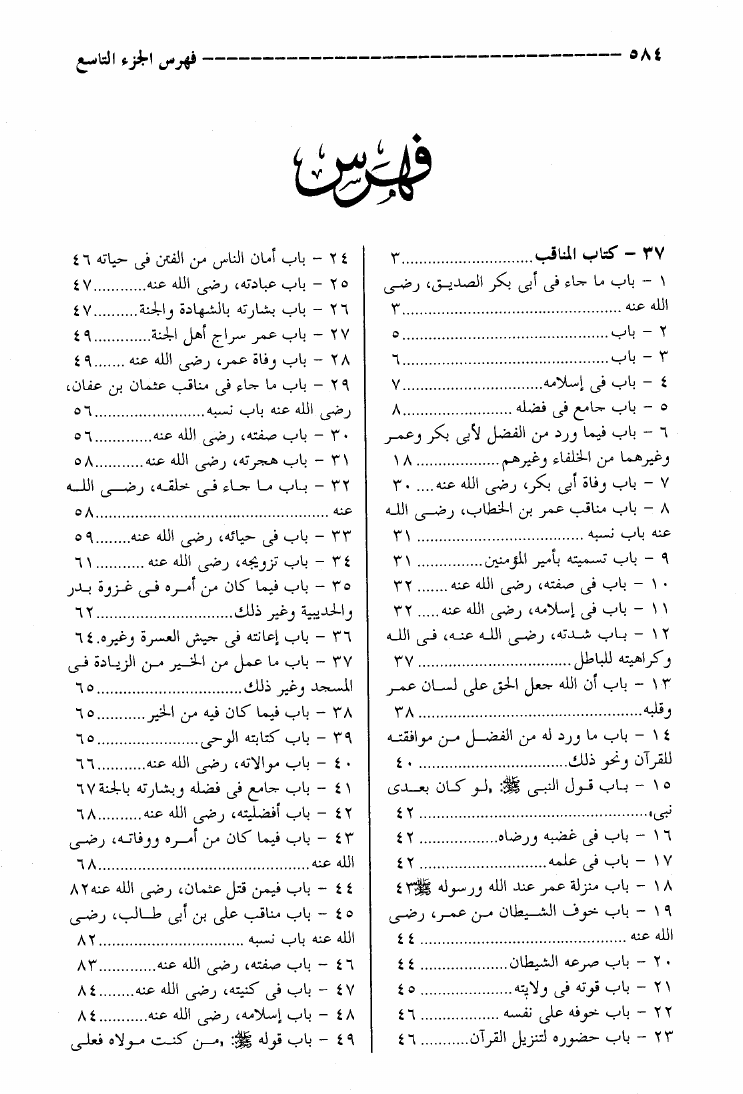 ٥٨٤ ـــــــــــــــــــــ فهرس الجزء التاسع
فهرس
٣٧ – كتاب المناقب..............................٣
١ – باب ما جاء فى أبى بكر الصديق، رضى
الله عنه ..............................٣
٢ – باب..............................٥
٣ – باب..............................٦
٤ – باب فى إسلامه..............................٧
٥ – باب جامع فى فضله ..............................٨
٦ – باب فيما ورد من الفضل لأبى بكر وعمر
وغيرهما من الخلفاء وغيرهم ....................١٨
٧ – باب وفاة أبى بكر، رضى الله عنه.... ٣٠
٨ – باب مناقب عمر بن الخطاب، رضى الله
عنه باب نسبه ..............................٣١
٩ – باب تسميته بأمير المؤمنين...............٣١
١٠ – باب فى صفته، رضى الله عنه .......٣٢
١١ – باب فى إسلامه، رضى الله عنه..... ٣٢
١٢ – باب شدته، رضى الله عنه، فى الله
وكراهيته للباطل ..............................٣٧
١٣ – باب أن الله جعل الحق على لسان عمر
وقلبه..............................٣٨
١٤ – باب ما ورد له من الفضل من موافقته
للقرآن ونحو ذلك..............................٤٠
١٥ – باب قول النبى ﷺ: «لو كان بعدى
نبى»..............................٤٢
١٦ – باب فى غضبه ورضاه................٤٢
١٧ – باب فى علمه..............................٤٢
١٨ – باب منزلة عمر عند الله ورسوله ﷺ٤٣
١٩ – باب خوف الشيطان من عمر، رضى
الله عنه ..............................٤٤
٢٠ – باب صرعه الشيطان....................٤٤
٢١ – باب قوته فى ولايته....................٤٥
٢٢ – باب خوفه على نفسه ..................٤٦
٢٣ – باب حضوره لتنزيل القرآن...........٤٦
٢٤ – باب أمان الناس من الفتن فى حياته ٤٦
٢٥ – باب عبادته، رضى الله عنه............٤٧
٢٦ – باب بشارته بالشهادة والجنة..........٤٧
٢٧ – باب عمر سراج أهل الجنة.............٤٩
٢٨ – باب وفاة عمر، رضى الله عنه .......٤٩
٢٩ – باب ما جاء فى مناقب عثمان بن عفان،
رضى الله عنه باب نسبه.........................٥٦
٣٠ – باب صفته، رضى الله عنه.............٥٦
٣١ – باب هجرته، رضى الله عنه...........٥٨
٣٢ – باب ما جاء فى خلقه، رضى الله
عنه ..............................٥٨
٣٣ – باب فى حيائه، رضى الله عنه........٥٩
٣٤ – باب تزويجه، رضى الله عنه ...........٦١
٣٥ – باب فيما كان من أمره فى غزوة بدر
والحديبية وغير ذلك..............................٦٢
٣٦ – باب إعانته فى جيش العسرة وغيره.٦٤
٣٧ – باب ما عمل من الخير من الزيادة فى
المسجد وغير ذلك..............................٦٥
٣٨ – باب فيما كان فيه من الخير...........٦٥
٣٩ – باب كتابته الوحى.......................٦٥
٤٠ – باب موالاته، رضى الله عنه...........٦٦
٤١ – باب جامع فى فضله وبشارته بالجنة٦٧
٤٢ – باب أفضليته، رضى الله عنه..........٦٨
٤٣ – باب فيما كان من أمره ووفاته، رضى
الله عنه..............................٦٨
٤٤ – باب فيمن قتل عثمان، رضى الله عنه٨٢
٤٥ – باب مناقب على بن أبى طالب، رضى
الله عنه باب نسبه ..............................٨٢
٤٦ – باب صفته، رضى الله عنه.............٨٣
٤٧ – باب فى كنيته، رضى الله عنه........٨٤
٤٨ – باب إسلامه، رضى الله عنه...........٨٤
٤٩ – باب قوله ﷺ: «من كنت مولاه فعلى